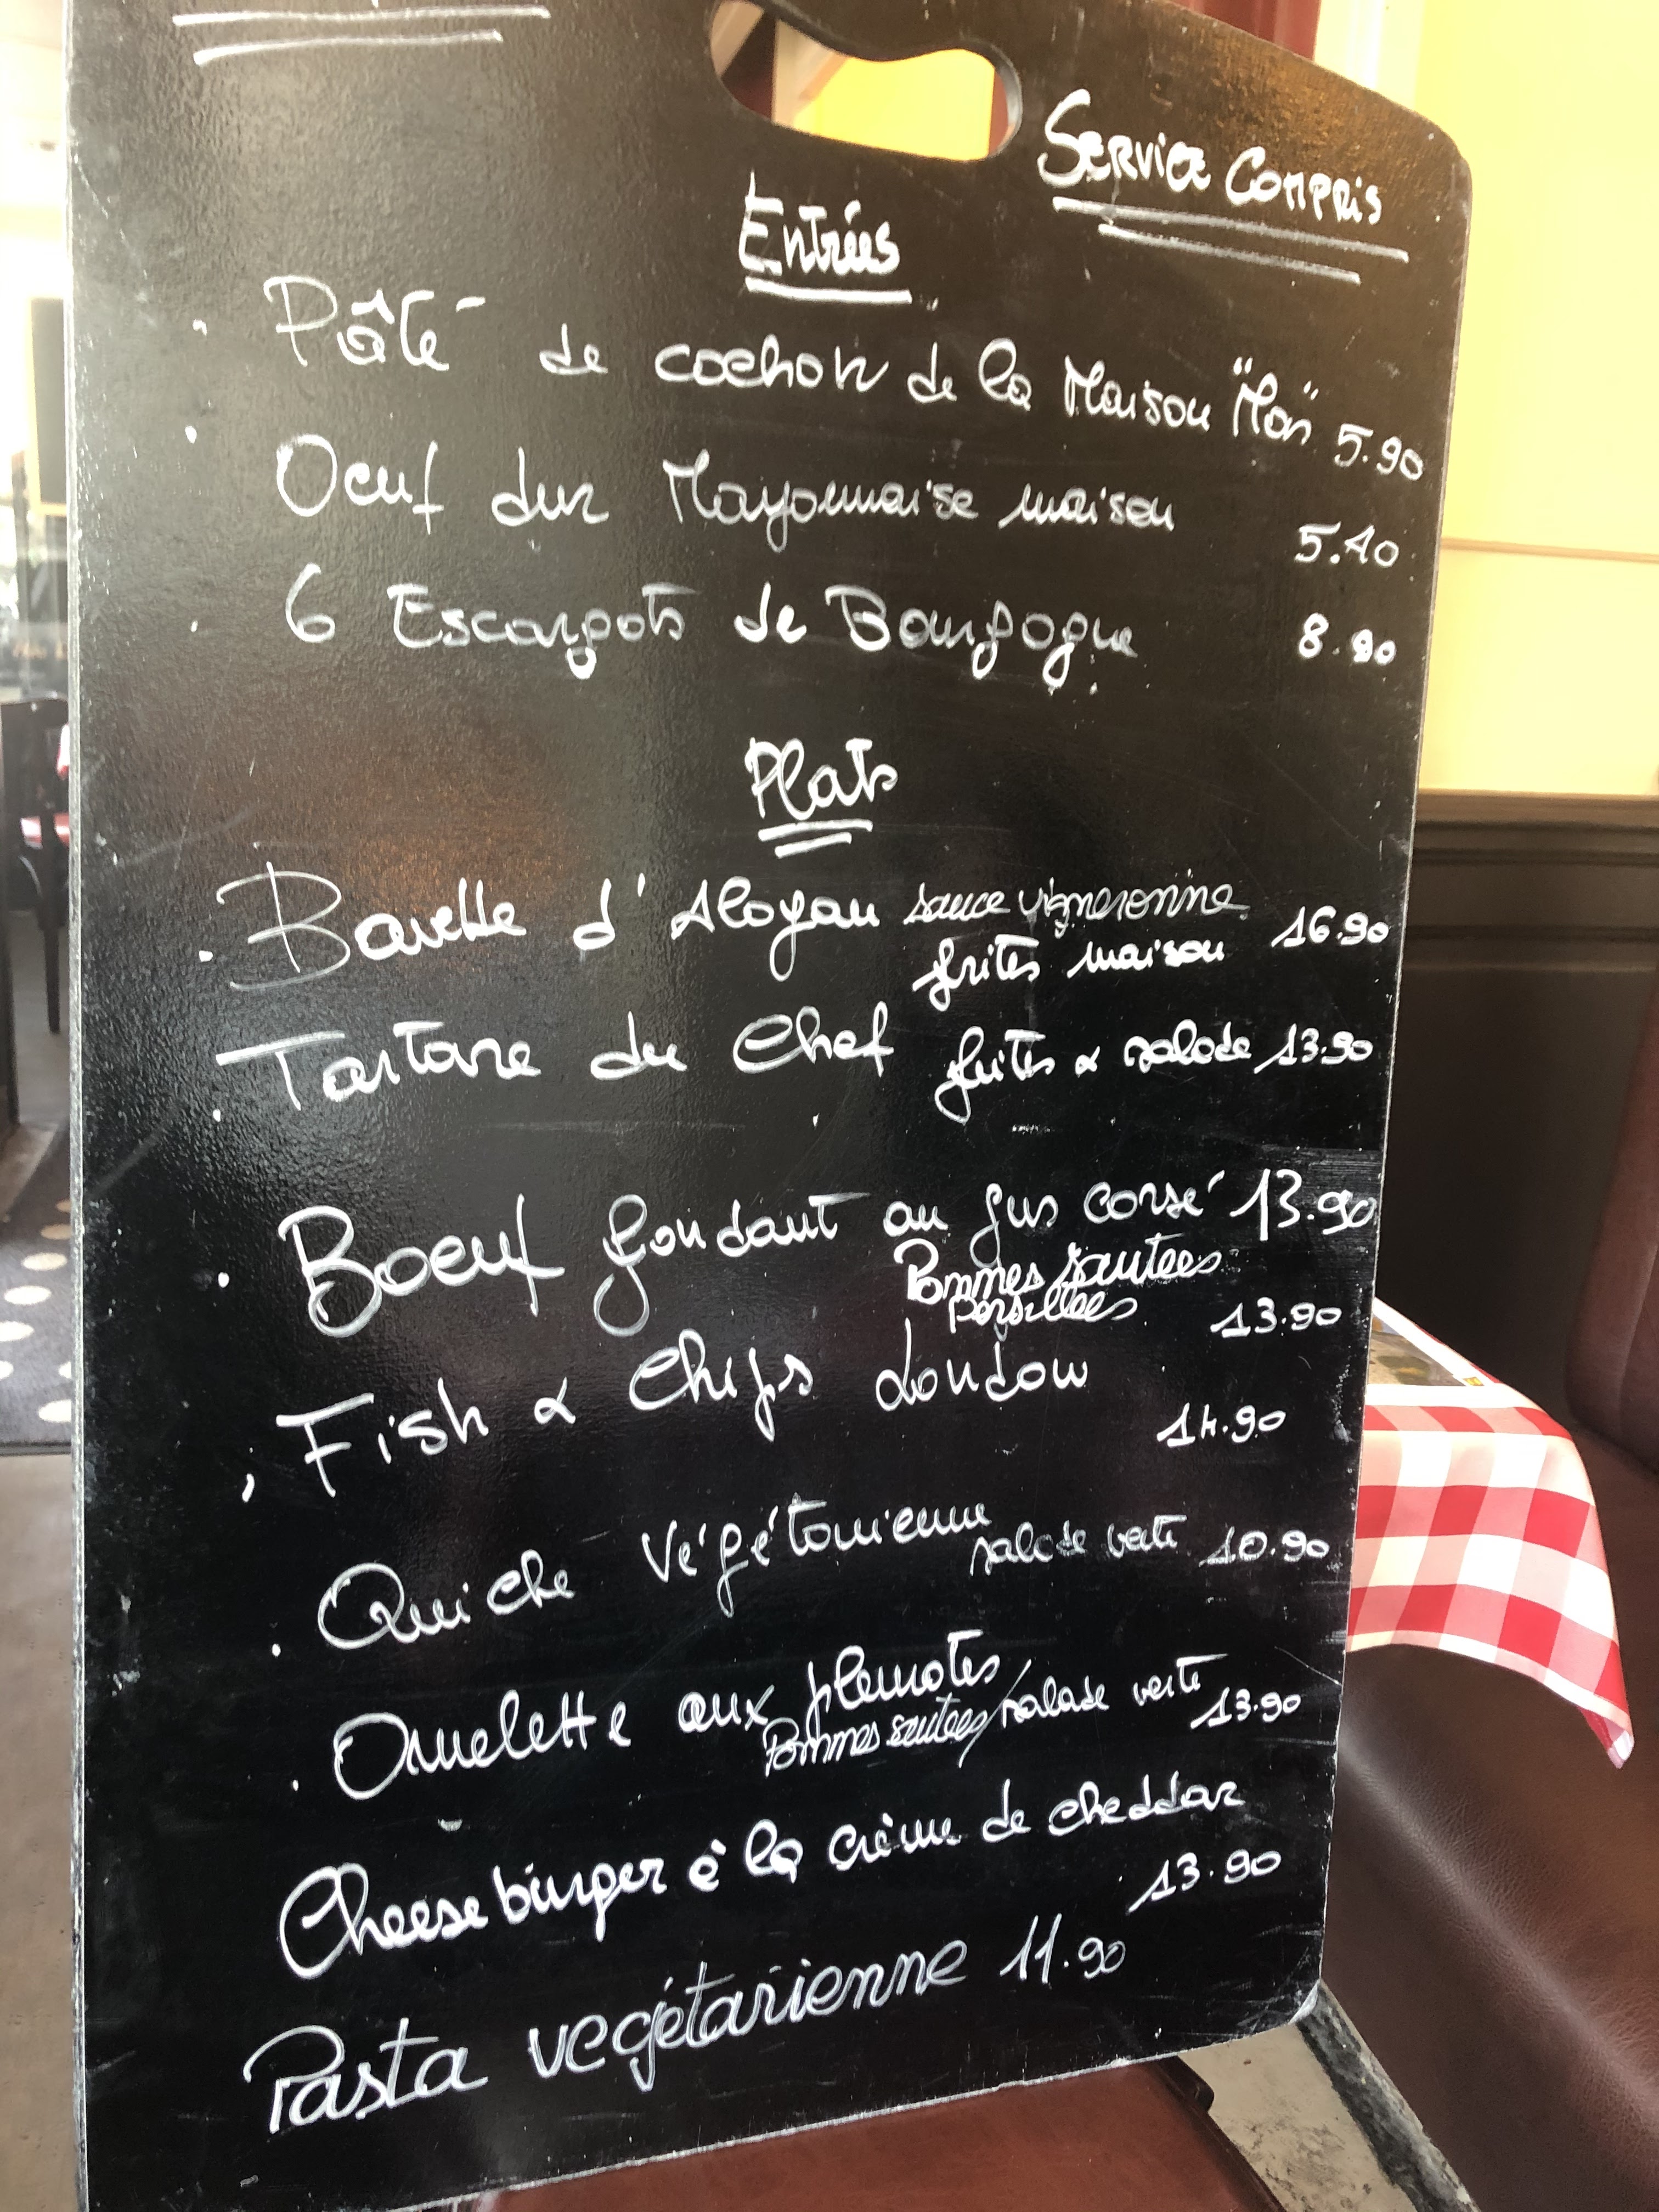 Service Compris
Entrées
Pâté de cochon de la Maison "Mas" 5.90
Oeuf dur Mayonnaise maison 5.40
6 Escargots de Bourgogne 8.90
Plats
Bavette d'Aloyau sauce vigneronne 16.90
frites maison
Tartare du Chef frites & salade 13.90
Boeuf fondant au jus corsé 13.90
Pommes sautées
persillées 13.90
Fish & Chips London
14.90
Quiche Végétarienne
salade verte 10.90
Omelette aux pleurotes
Pommes sautées/salade verte
13.90
Cheese burger à la crème de cheddar
13.90
Pasta végétarienne 11.90